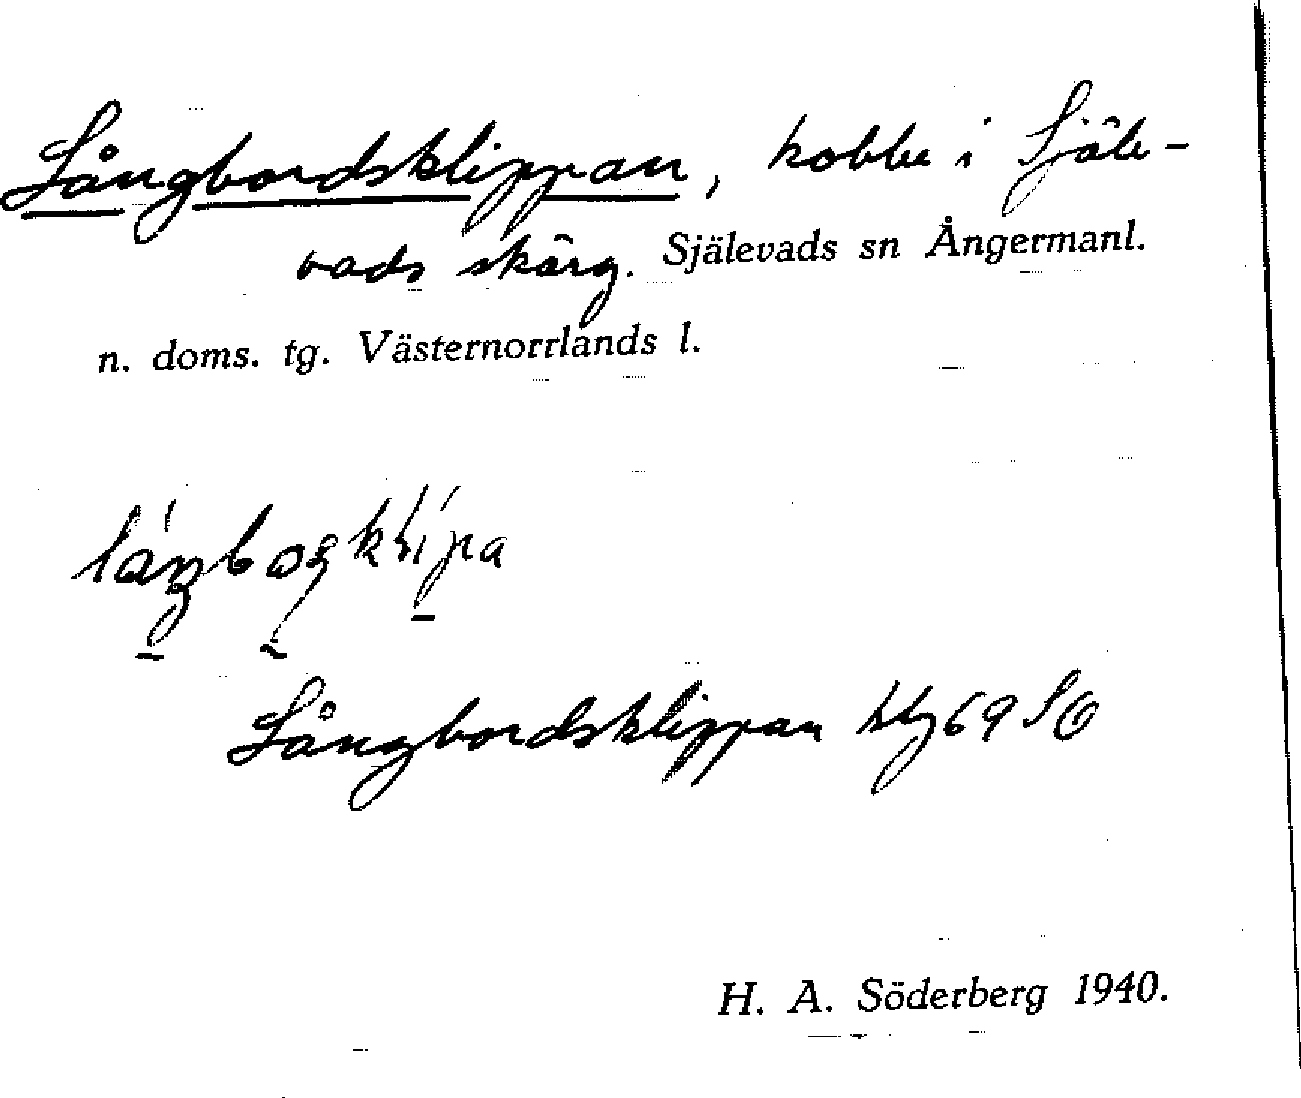 Långbordsklippan, kobbe i Själe-
vads skärg. Själevads sn Ångermanl.
n. doms. tg. Västernorrlands l.
Långbordsklippan 69 SO
H. A. Söderberg 1940.